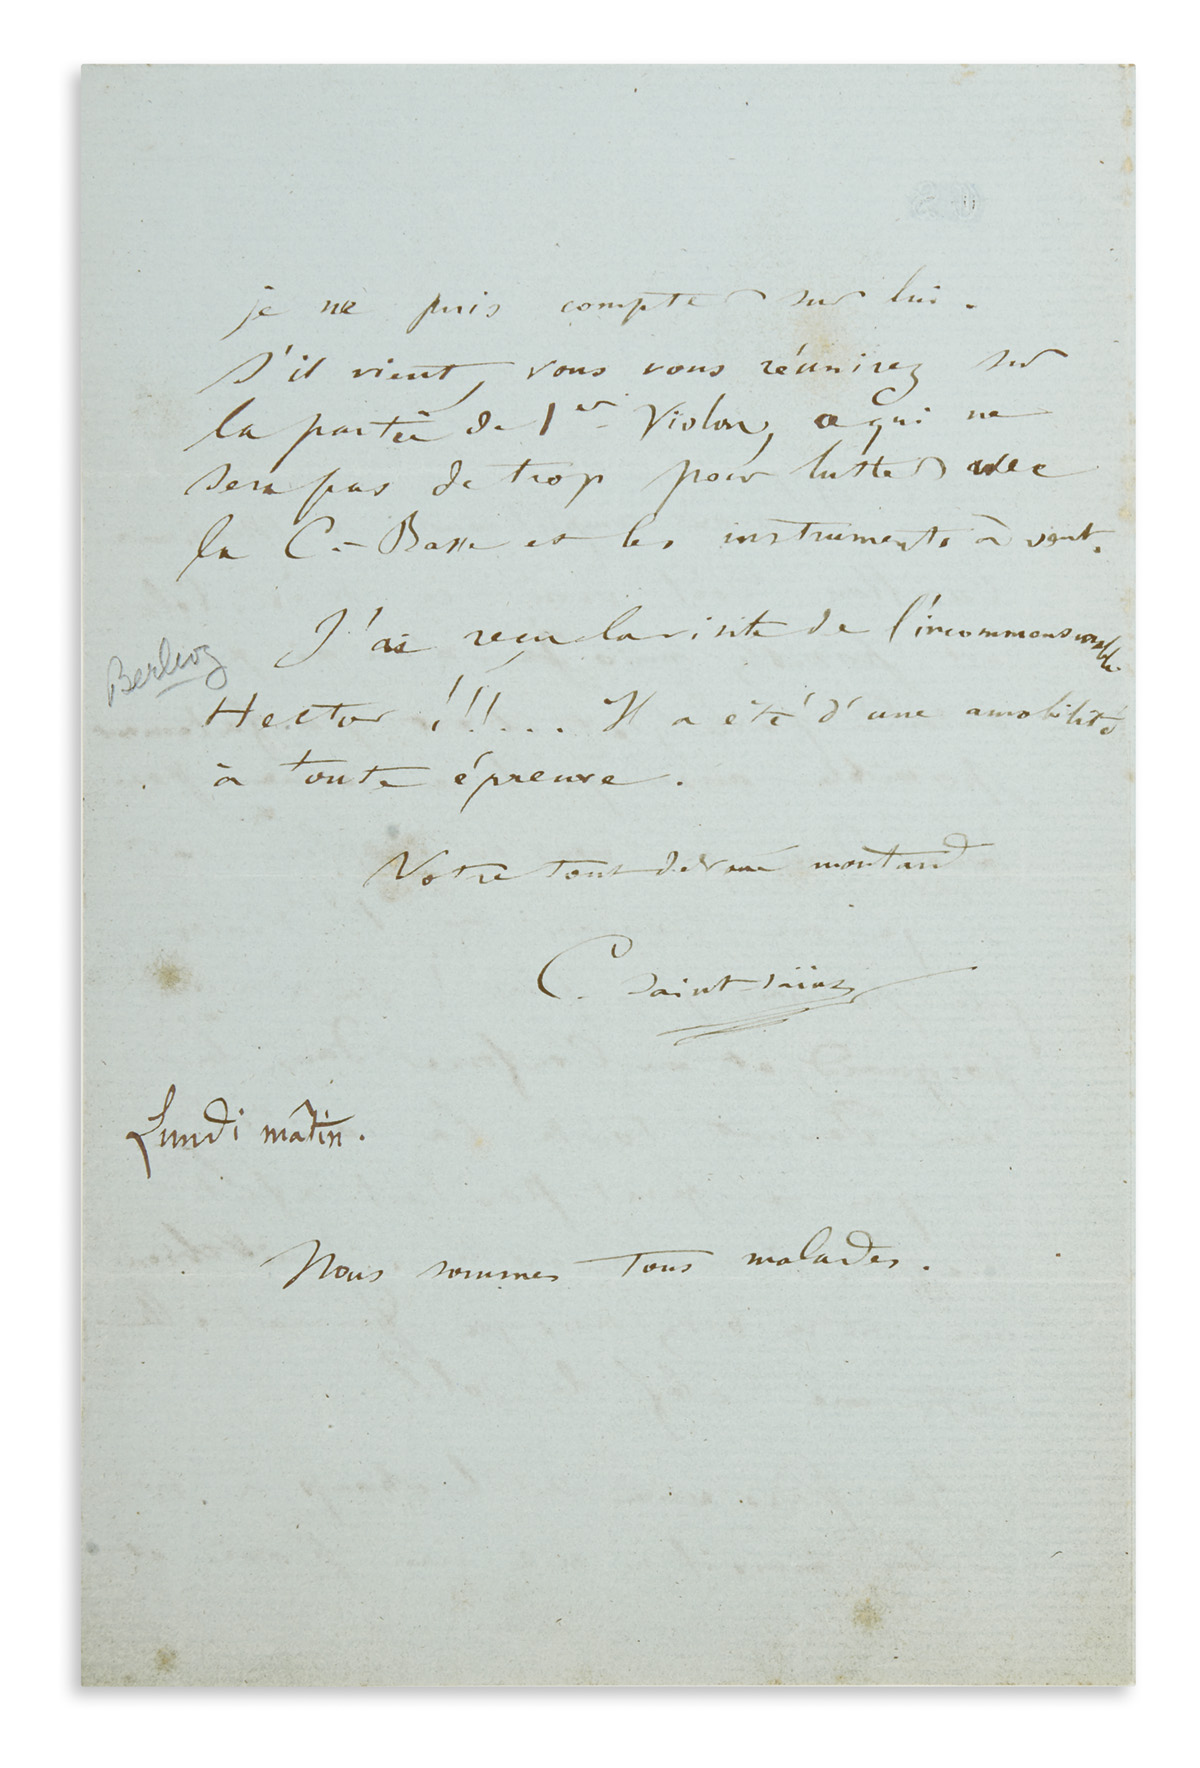 je ne puis compter sur lui.
S'il vient, vous vous réunirez sur
la partie de 1er Violon, ce qui ne
sera pas de trop pour lutter avec
la C.-Basse et les instruments à vent.
J'ai reçu la visite de l'incommensurable
Berlioz
Hector !!!... Il a été d'une amabilité
à toute épreuve.
Votre tout dévoué
C. Saint-Saëns
Lundi matin.
Nous sommes tous malades.